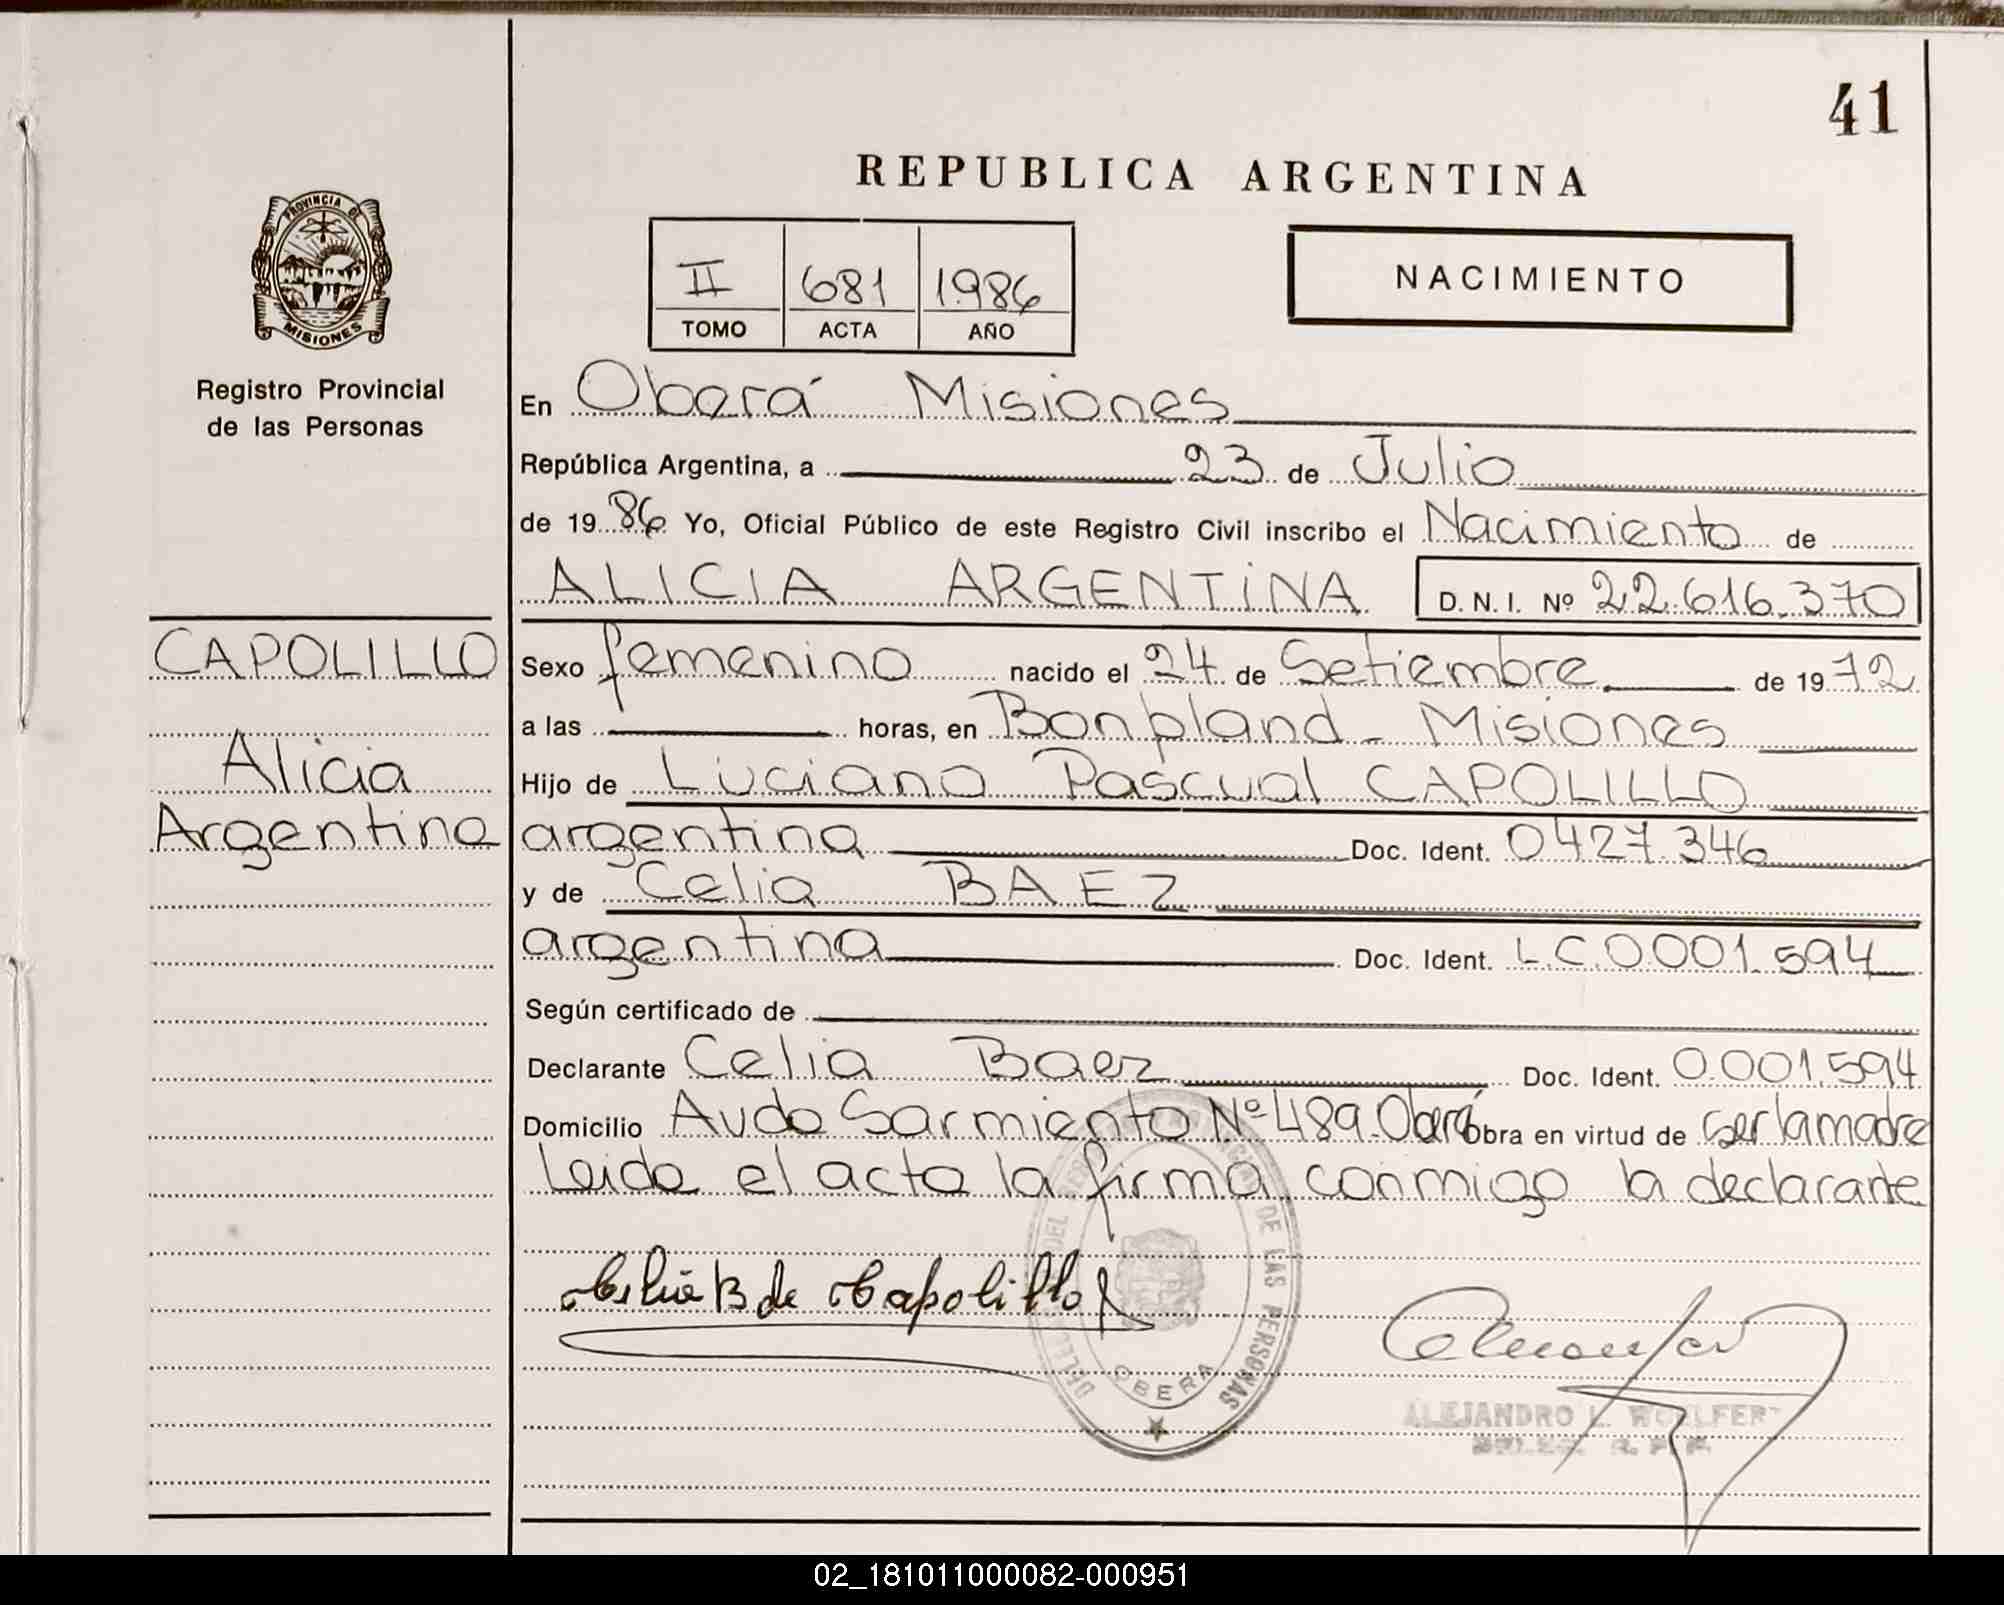 41
REPUBLICA ARGENTINA
PROVINCIA DE
MISIONES
Registro Provincial
de las Personas
II 681 1986
TOMO ACTA AÑO
NACIMIENTO
En Oberá Misiones
República Argentina, a 23 de Julio
de 1986 Yo, Oficial Público de este Registro Civil inscribo el Nacimiento de
ALICIA ARGENTINA D. N. I. Nº 22.616.370
CAPOLILLO
Alicia
Argentina
Sexo femenino nacido el 24 de Setiembre de 1972
a las horas, en Bonpland - Misiones
Hijo de Luciano Pascual CAPOLILLO
argentino Doc. Ident. 0427.346
y de Celia BAEZ
argentina Doc. Ident. L.C.0.001.594
Según certificado de
Declarante Celia Baez Doc. Ident. 0.001.594
Domicilio Avda Sarmiento Nº 489.Oberá Obra en virtud de ser la madre
Leida el acta la firma conmigo la declarante
Celia B de Capolillo
DEL DE LAS PERSONAS
OBERA
ALEJANDRO L. WOELFERT
02_181011000082-000951